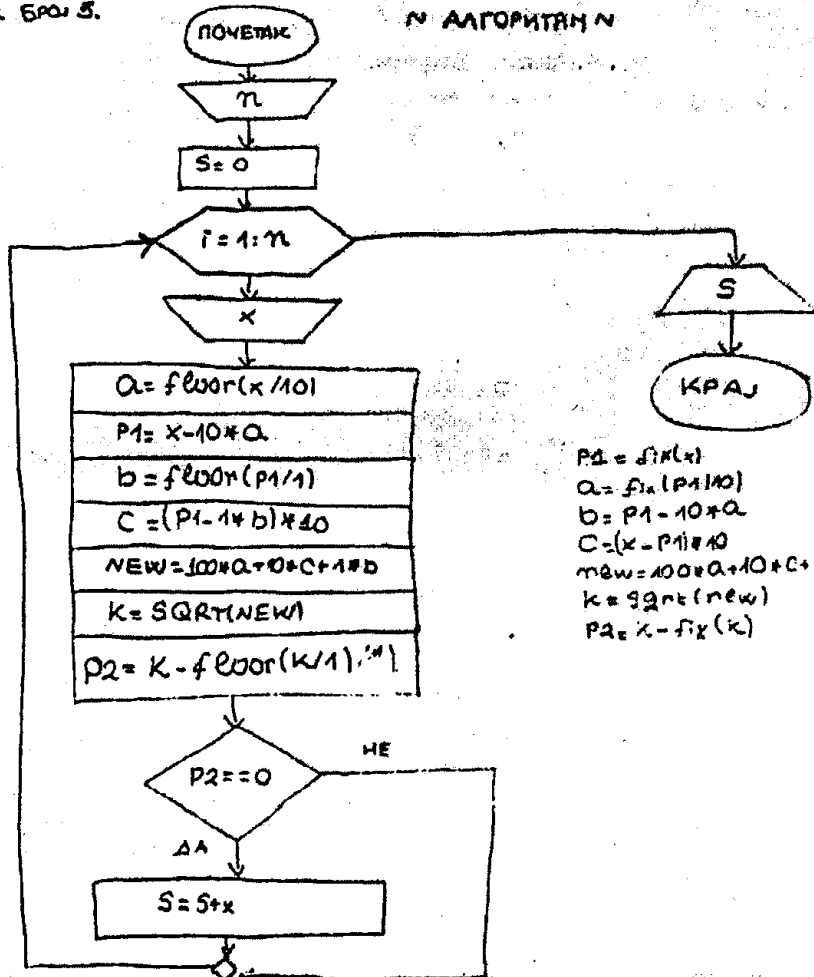 БРОЈ 5.
~ АЛГОРИТАМ ~
ПОЧЕТАК
n
S=0
i=1:n
x
a=floor(x/10)
P1=x-10*a
b=floor(P1/1)
C=(P1-1*b)*10
NEW=100*a+10*c+1*b
K=SQRT(NEW)
P2=K-floor(K/1)
P2==0
НЕ
ДА
S=S+x
S
КРАЈ
P1=fix(x)
a=fix(P1/10)
b=P1-10*a
C=(x-P1)*10
new=100*a+10*c+
k=sqrt(new)
P2=k-fix(k)